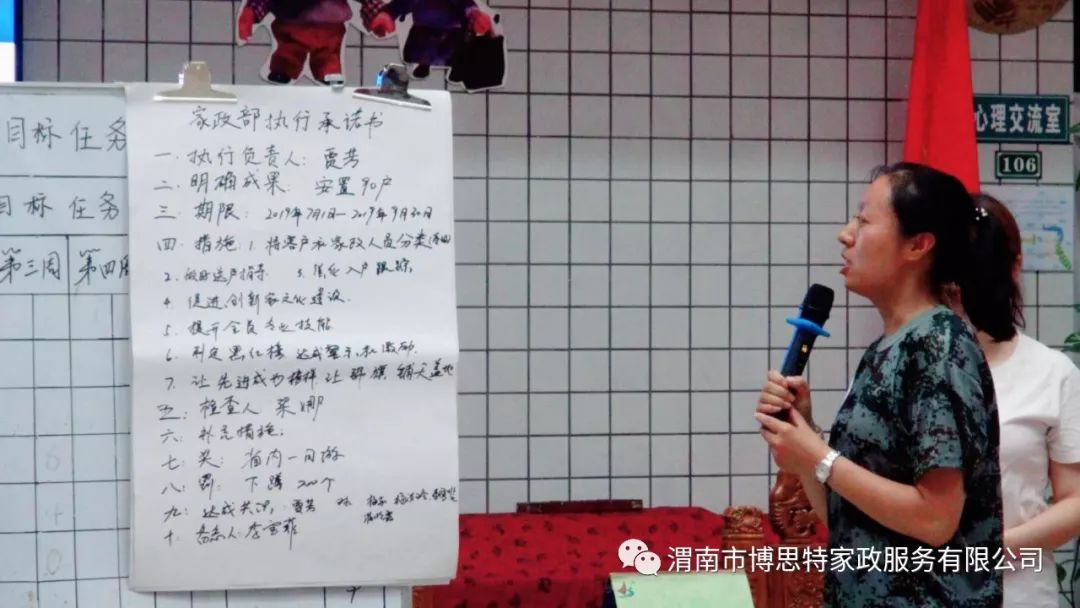 家政部执行承诺书
一、执行负责人：贾芳
二、明确成果：安置90户
三、期限：2019年7月1日—2019年9月30日
四、措施：1.将客户和家政人员分类
2.做好选户指导 3.强化入户跟踪
4.促进创新家文化建设.
5.提升全员专业技能
6.制定黑红榜 达成警示和激励.
7.让先进成为榜样 让 铺天盖地
五：检查人 梁娜
六：补充措施：
七：奖：省内一日游
八：罚：下蹲200个
九：达成共识：贾芳
十
目标任务
目标任务
第三周 第四周
心理交流室
106
渭南市博思特家政服务有限公司